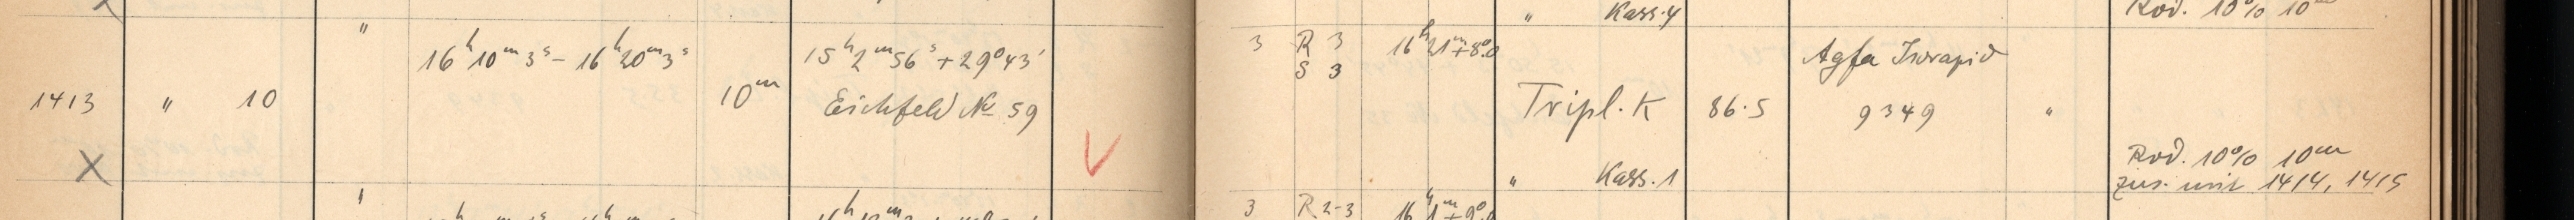 " Kass. 4 Rod. 10% 10m
"
16h10m3s – 16h20m3s 15h2m56s +29°43' 3 R 3 16h21m +8°.0 Agfa Isorapid
S 3
1413 " 10 10m Eichfeld № 59 Tripl. K 86.5 9349 "
X V Rod. 10% 10m
" Kass. 1 zus. mit 1414, 1415
" 3 R 2-3